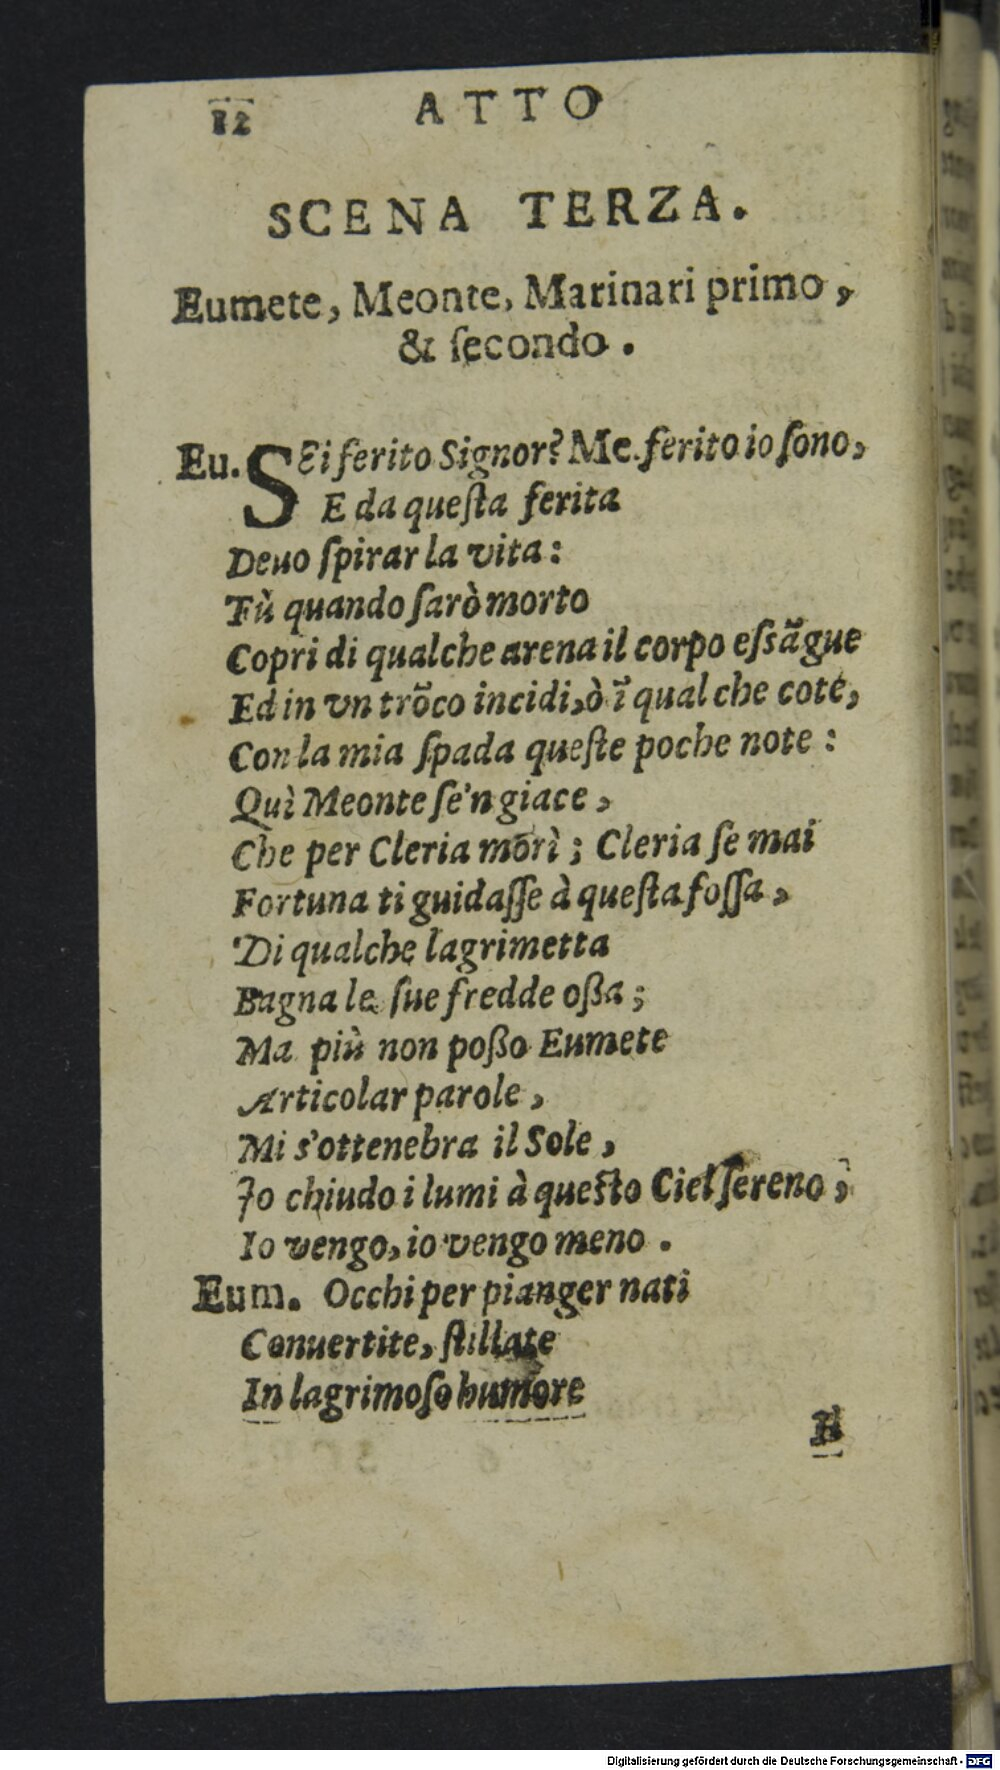 82 ATTO
SCENA TERZA.
Eumete, Meonte, Marinari primo,
& ſecondo.
Eu. SEi ferito Signor? Me. ferito io ſono,
E da queſta ferita
Deuo ſpirar la vita:
Tù quando ſarò morto
Copri di qualche arena il corpo eſsãgue
Ed in vn trõco incidi, ò ĩ qual che cote,
Con la mia ſpada queſte poche note:
Quì Meonte ſe'n giace,
Che per Cleria morì; Cleria ſe mai
Fortuna ti guidaſſe à queſta foſſa,
Di qualche lagrimetta
Bagna le ſue fredde oßa;
Ma più non poßo Eumete
Articolar parole,
Mi s'ottenebra il Sole,
Io chiudo i lumi à queſto Ciel ſereno;
Io vengo, io vengo meno.
Eum. Occhi per pianger nati
Conuertite, ſtillate
In lagrimoſo humore
H
Digitalisierung gefördert durch die Deutsche Forschungsgemeinschaft - DFG